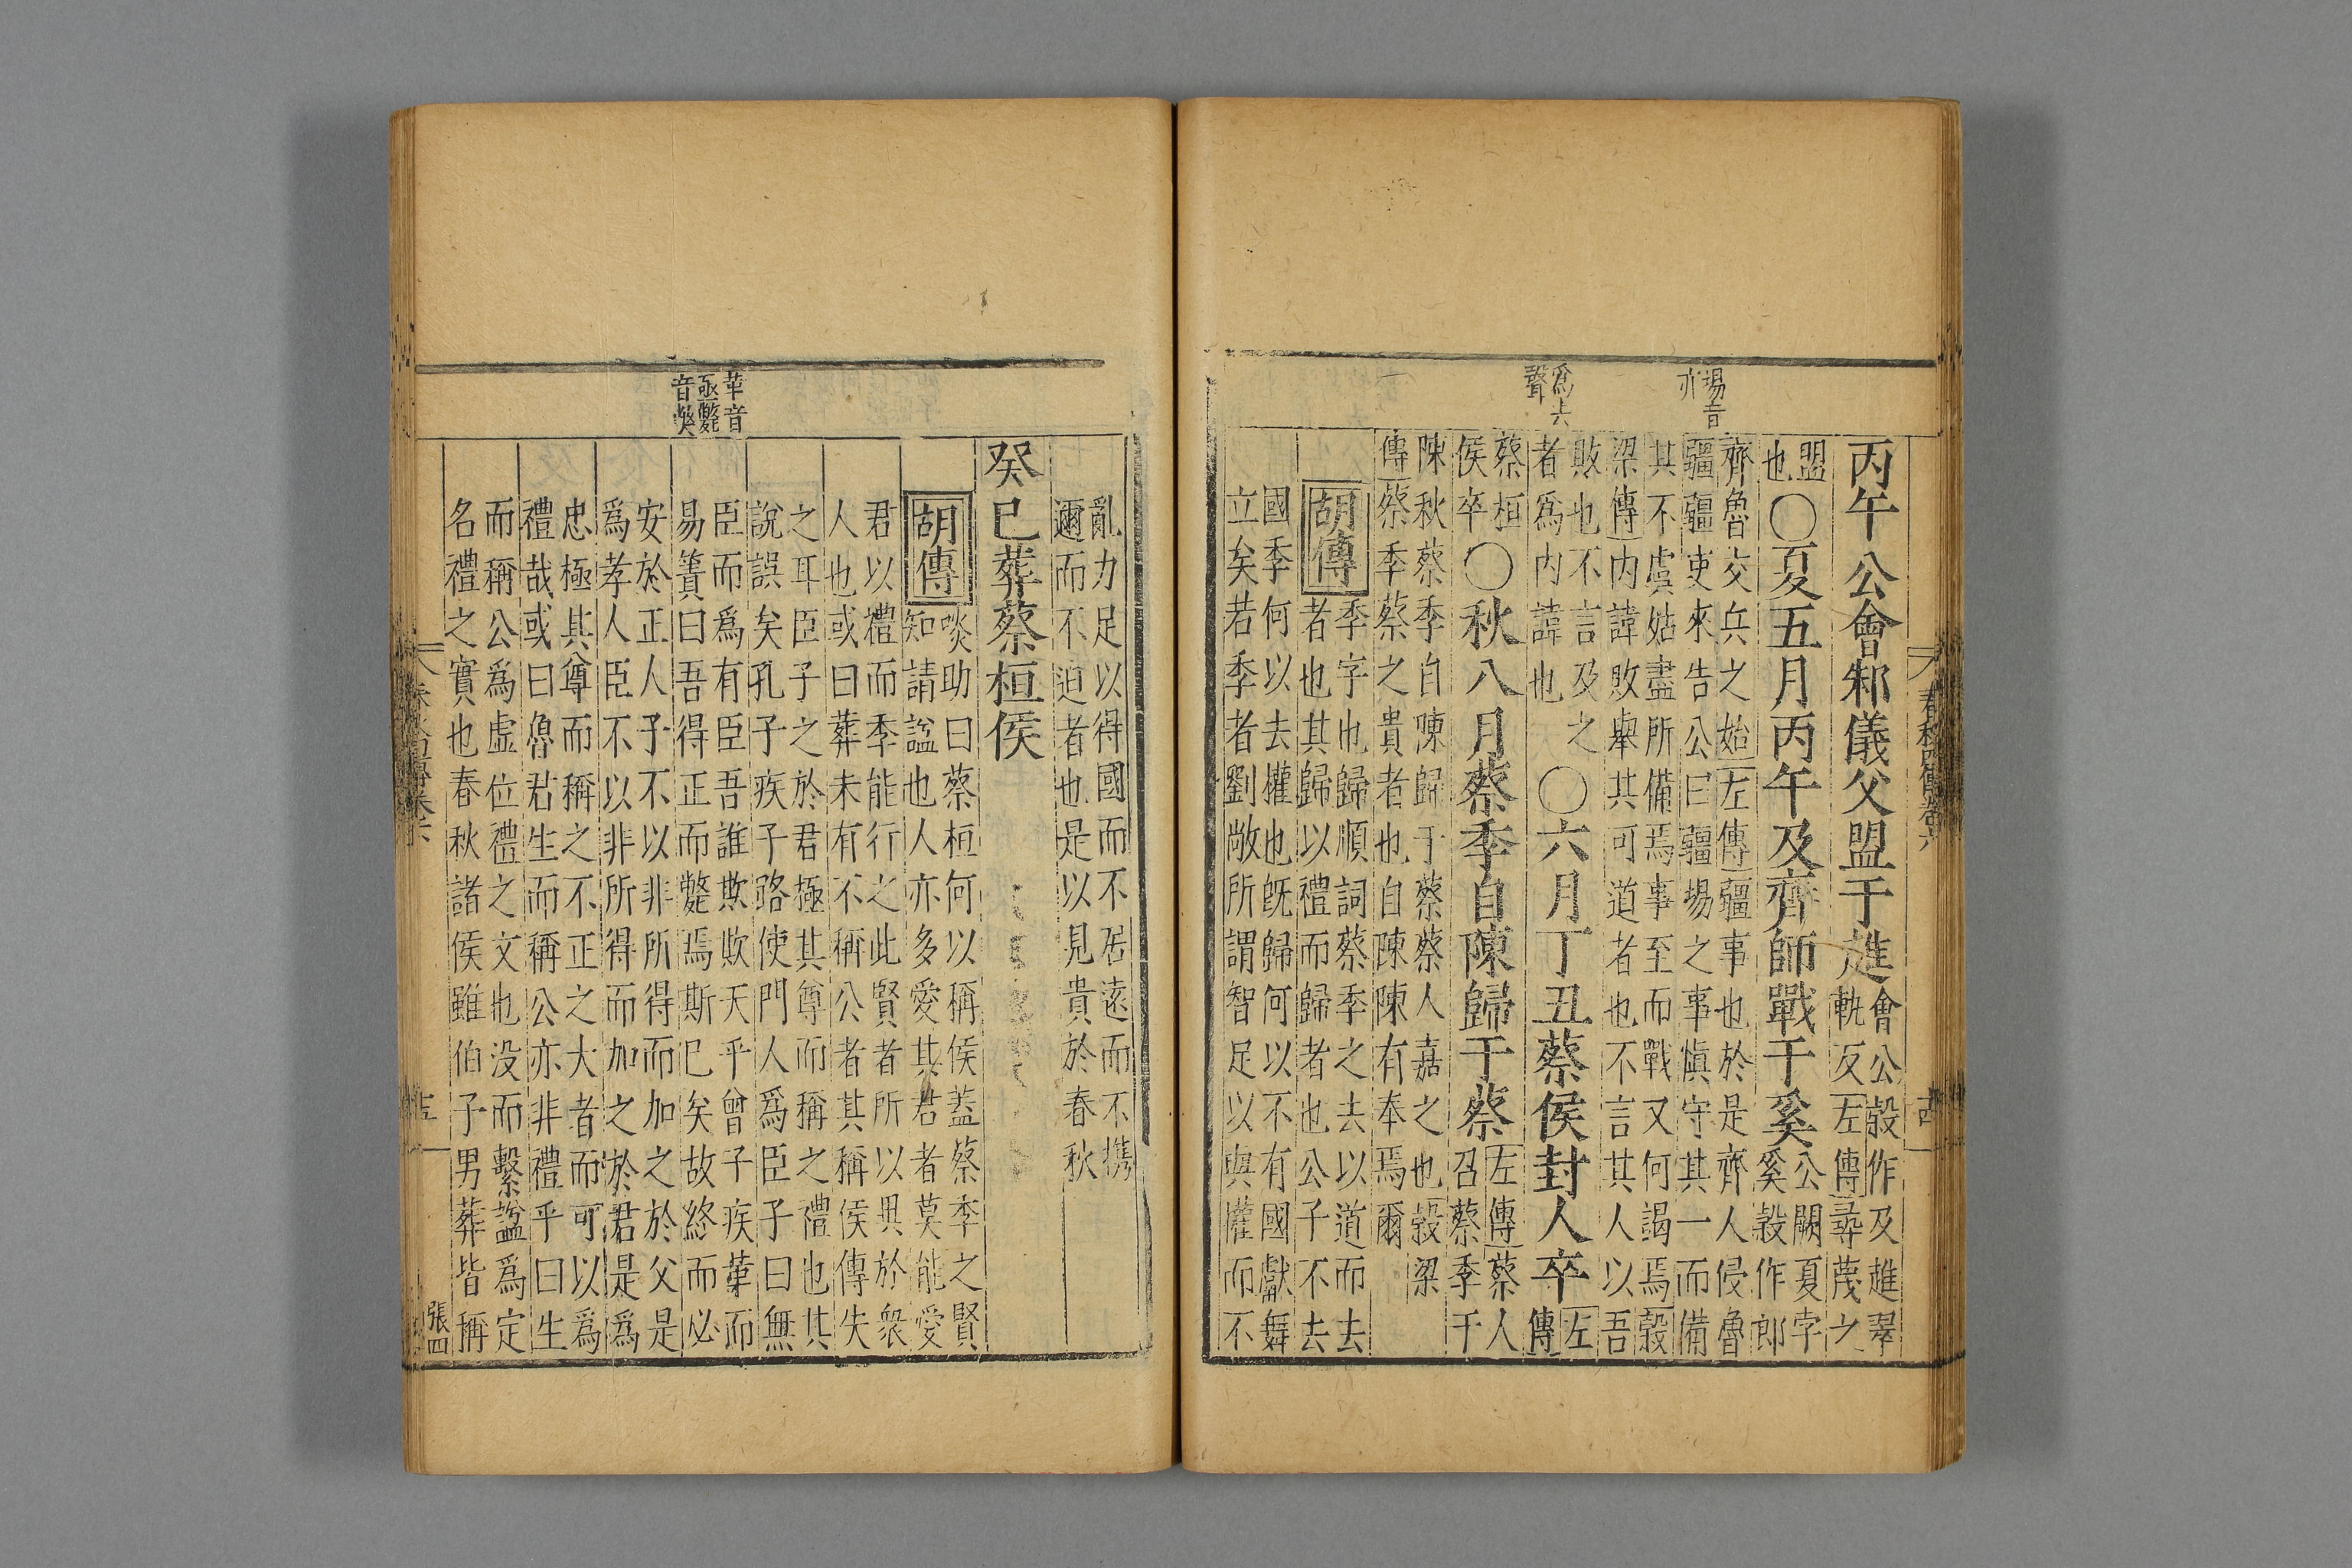 春秋四傳卷六
埸音
亦
爲去
聲
丙午公會邾儀父盟于趡
會公穀作及趡翠
軌反左傳尋蔑之
盟
也
○夏五月丙午及齊師戰于奚
公闕夏字
奚穀作郎
齊魯交兵之始左傳疆事也於是齊人侵魯
疆疆吏來告公曰疆埸之事愼守其一而備
其不虞姑盡所備焉事至而戰又何謁焉穀
梁傳内諱敗舉其可道者也不言其人以吾
敗也不言及之
者爲内諱也
○六月丁丑蔡侯封人卒
左
傳
蔡桓
侯卒
○秋八月蔡季自陳歸于蔡
左傳蔡人
召蔡季于
陳秋蔡季自陳歸于蔡蔡人嘉之也穀梁
傳蔡季蔡之貴者也自陳陳有奉焉爾
胡傳
季字也歸順詞蔡季之去以道而去
者也其歸以禮而歸者也公子不去
國季何以去權也旣歸何以不有國獻舞
立矣若季者劉敞所謂智足以與權而不
亂力足以得國而不居遠而不携
邇而不迫者也是以見貴於春秋
癸巳葬蔡桓侯
胡傳
啖助曰蔡桓何以稱侯蓋蔡季之賢
知請諡也人亦多愛其君者莫能愛
君以禮而季能行之此賢者所以異於衆
人也或曰葬未有不稱公者其稱侯傳失
之耳臣子之於君極其尊而稱之禮也其
說誤矣孔子疾子路使門人爲臣子曰無
臣而爲有臣吾誰欺欺天乎曾子疾革而
易簀曰吾得正而斃焉斯巳矣故終而必
安於正人子不以非所得而加之於父是
爲孝人臣不以非所得而加之於君是爲
忠極其尊而稱之不正之大者而可以爲
禮哉或曰魯君生而稱公亦非禮乎曰生
而稱公爲虛位禮之文也没而繫諡爲定
名禮之實也春秋諸侯雖伯子男葬皆稱
革音
亟斃
音弊
春秋四傳卷六
張四